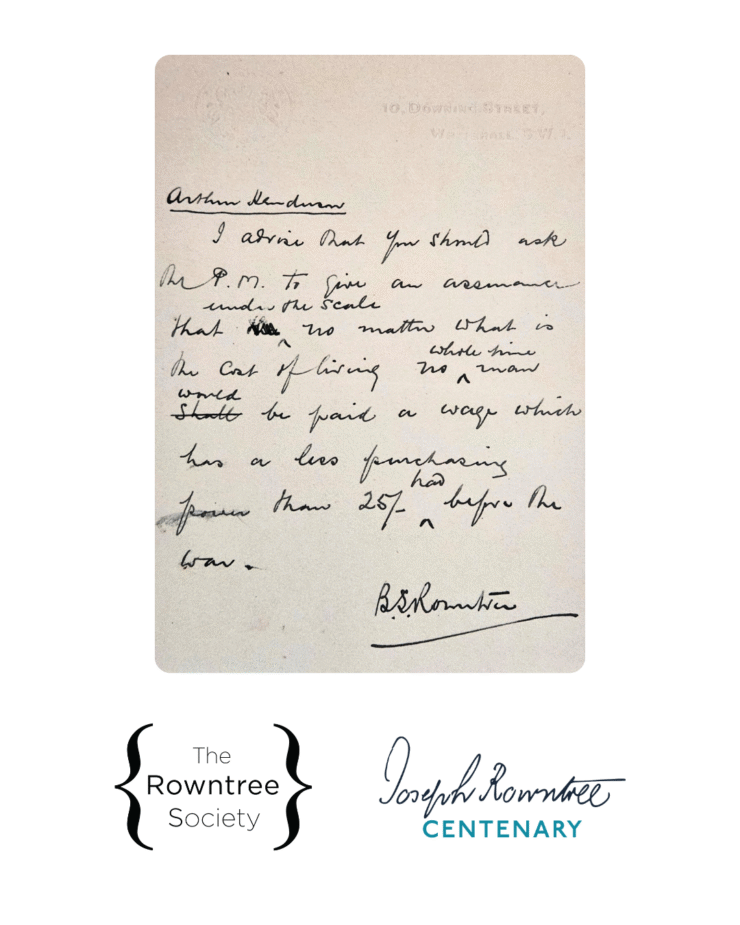 10, DOWNING STREET,
WHITEHALL, S.W.1.
Arthur Henderson
I advise that you should ask
the P.M. to give an assurance
under the scale
that no matter what is
whole time
the cost of living no ^ man
would
shall be paid a wage which
has a less purchasing
had
power than 25/- ^ before the
war.
B.S. Rowntree
The
Rowntree
Society
Joseph Rowntree
CENTENARY